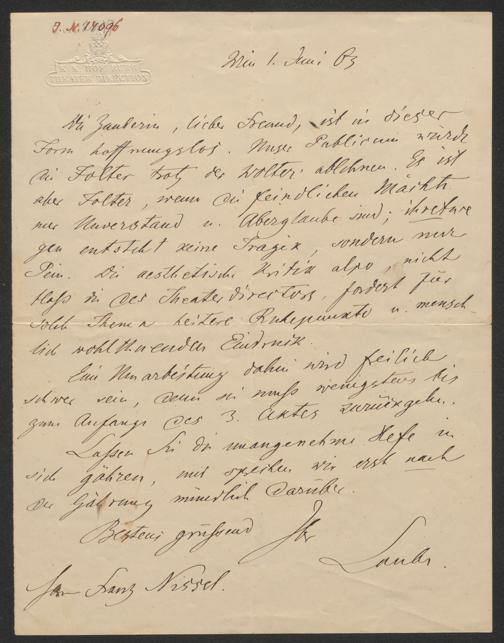 J.N. 17096
K. K. HOF BURG
THEATER DIRECTION
Wien 1. Juni 63
Die Zauberin, lieber Freund, ist in dieser
Form hoffnungslos. Unser Publicum würde
die Folter trotz der Wolter ablehnen. Es ist
aber Folter, wenn die feindlichen Mächte
nur Unverstand u. Aberglaube sind,
gen entsteht keine Tragik, sondern nur
Pein. Die aesthetische Kritik also, nicht
bloß die des Theaterdirectors, fordert für
solch Thema heitere Ruhepunkte u. mensch-
lich wohlthuenden Eindruck.
Eine Umarbeitung dahin wird freilich
schwer sein, denn sie muß wenigstens bis
zum Anfange des 3. Aktes zurückgehn.
Lassen Sie die unangenehme Hefe in
sich gähren, und sprechen wir erst nach
der Gährung mündlich darüber.
Bestens grüssend Ihr
Laube.
Herr Franz Nissel.